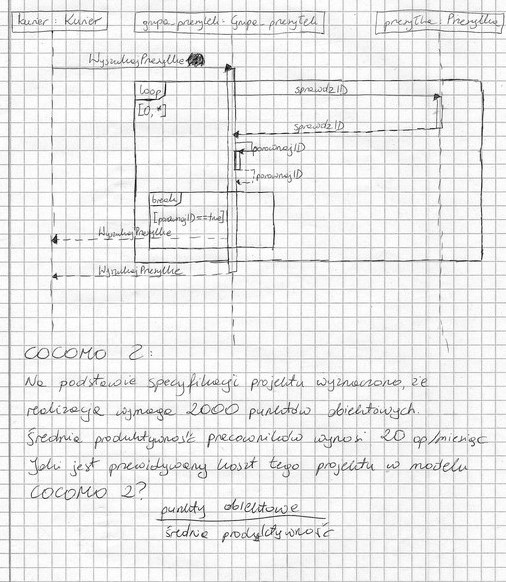 kurier : Kurier
grupa_przesyłek : Grupa_przesyłek
przesyłka : Przesyłka
WyszukajPrzesyłkę
loop
[0, *]
sprawdzID
sprawdzID
porównajID
porównajID
break
[porównajID==true]
WyszukajPrzesyłkę
WyszukajPrzesyłkę
COCOMO 2:
Na podstawie specyfikacji projektu wyznaczono, że
realizacja wymaga 2000 punktów obiektowych.
Średnia produktywność pracowników wynosi 20 op/miesiąc
Jaki jest przewidywany koszt tego projektu w modelu
COCOMO 2?
punkty obiektowe
średnia produktywność